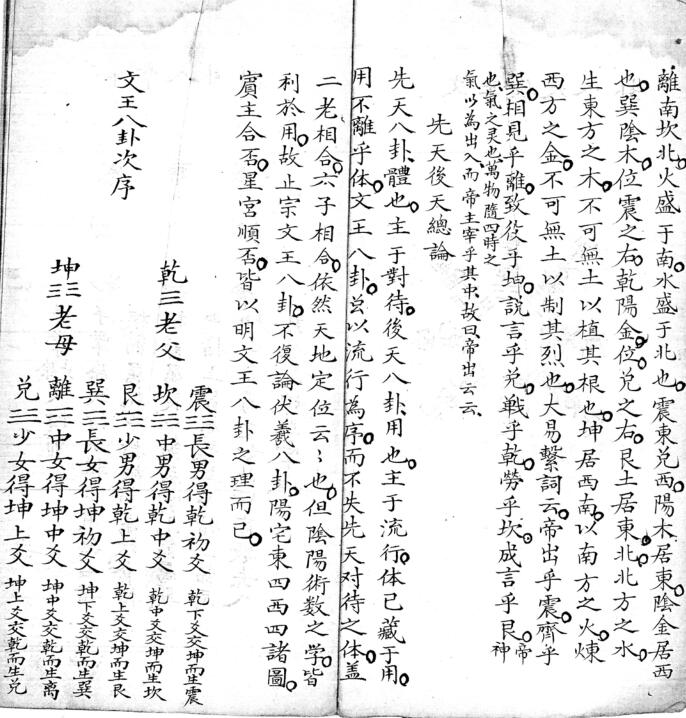 離南坎北火盛于南水盛于北也震東兌西陽木居東陰金居西
也巽陰木位震之右乾陽金位兌之右艮土居東北北方之水
生東方之木不可無土以植其根也坤居西南以南方之火煉
西方之金不可無土以制其烈也大易繫詞云帝出乎震齊乎
巽相見乎離致役乎坤說言乎兌戰乎乾勞乎坎成言乎艮帝神
也氣之灵也萬物隨四時之
氣以為出入而帝主宰乎其中故曰帝出云云
先天後天總論
先天八卦體也主于對待後天八卦用也主于流行体已藏于用
用不離乎体文王八卦总以流行為序而不失先天对待之体盖
二老相合六子相合依然天地定位云〻也但陰陽術数之学皆
利於用故止宗文王八卦不復論伏羲八卦陽宅東四西四諸圖
賓主合否星宮順否皆以明文王八卦之理而已
文王八卦次序
乾☰老父
震☳長男得乾初爻 乾下爻交坤而生震
坎☵中男得乾中爻 乾中爻交坤而生坎
艮☶少男得乾上爻 乾上爻交坤而生艮
坤☷老母
巽☴長女得坤初爻 坤下爻交乾而生巽
離☲中女得坤中爻 坤中爻交乾而生离
兌☱少女得坤上爻 坤上爻交乾而生兌